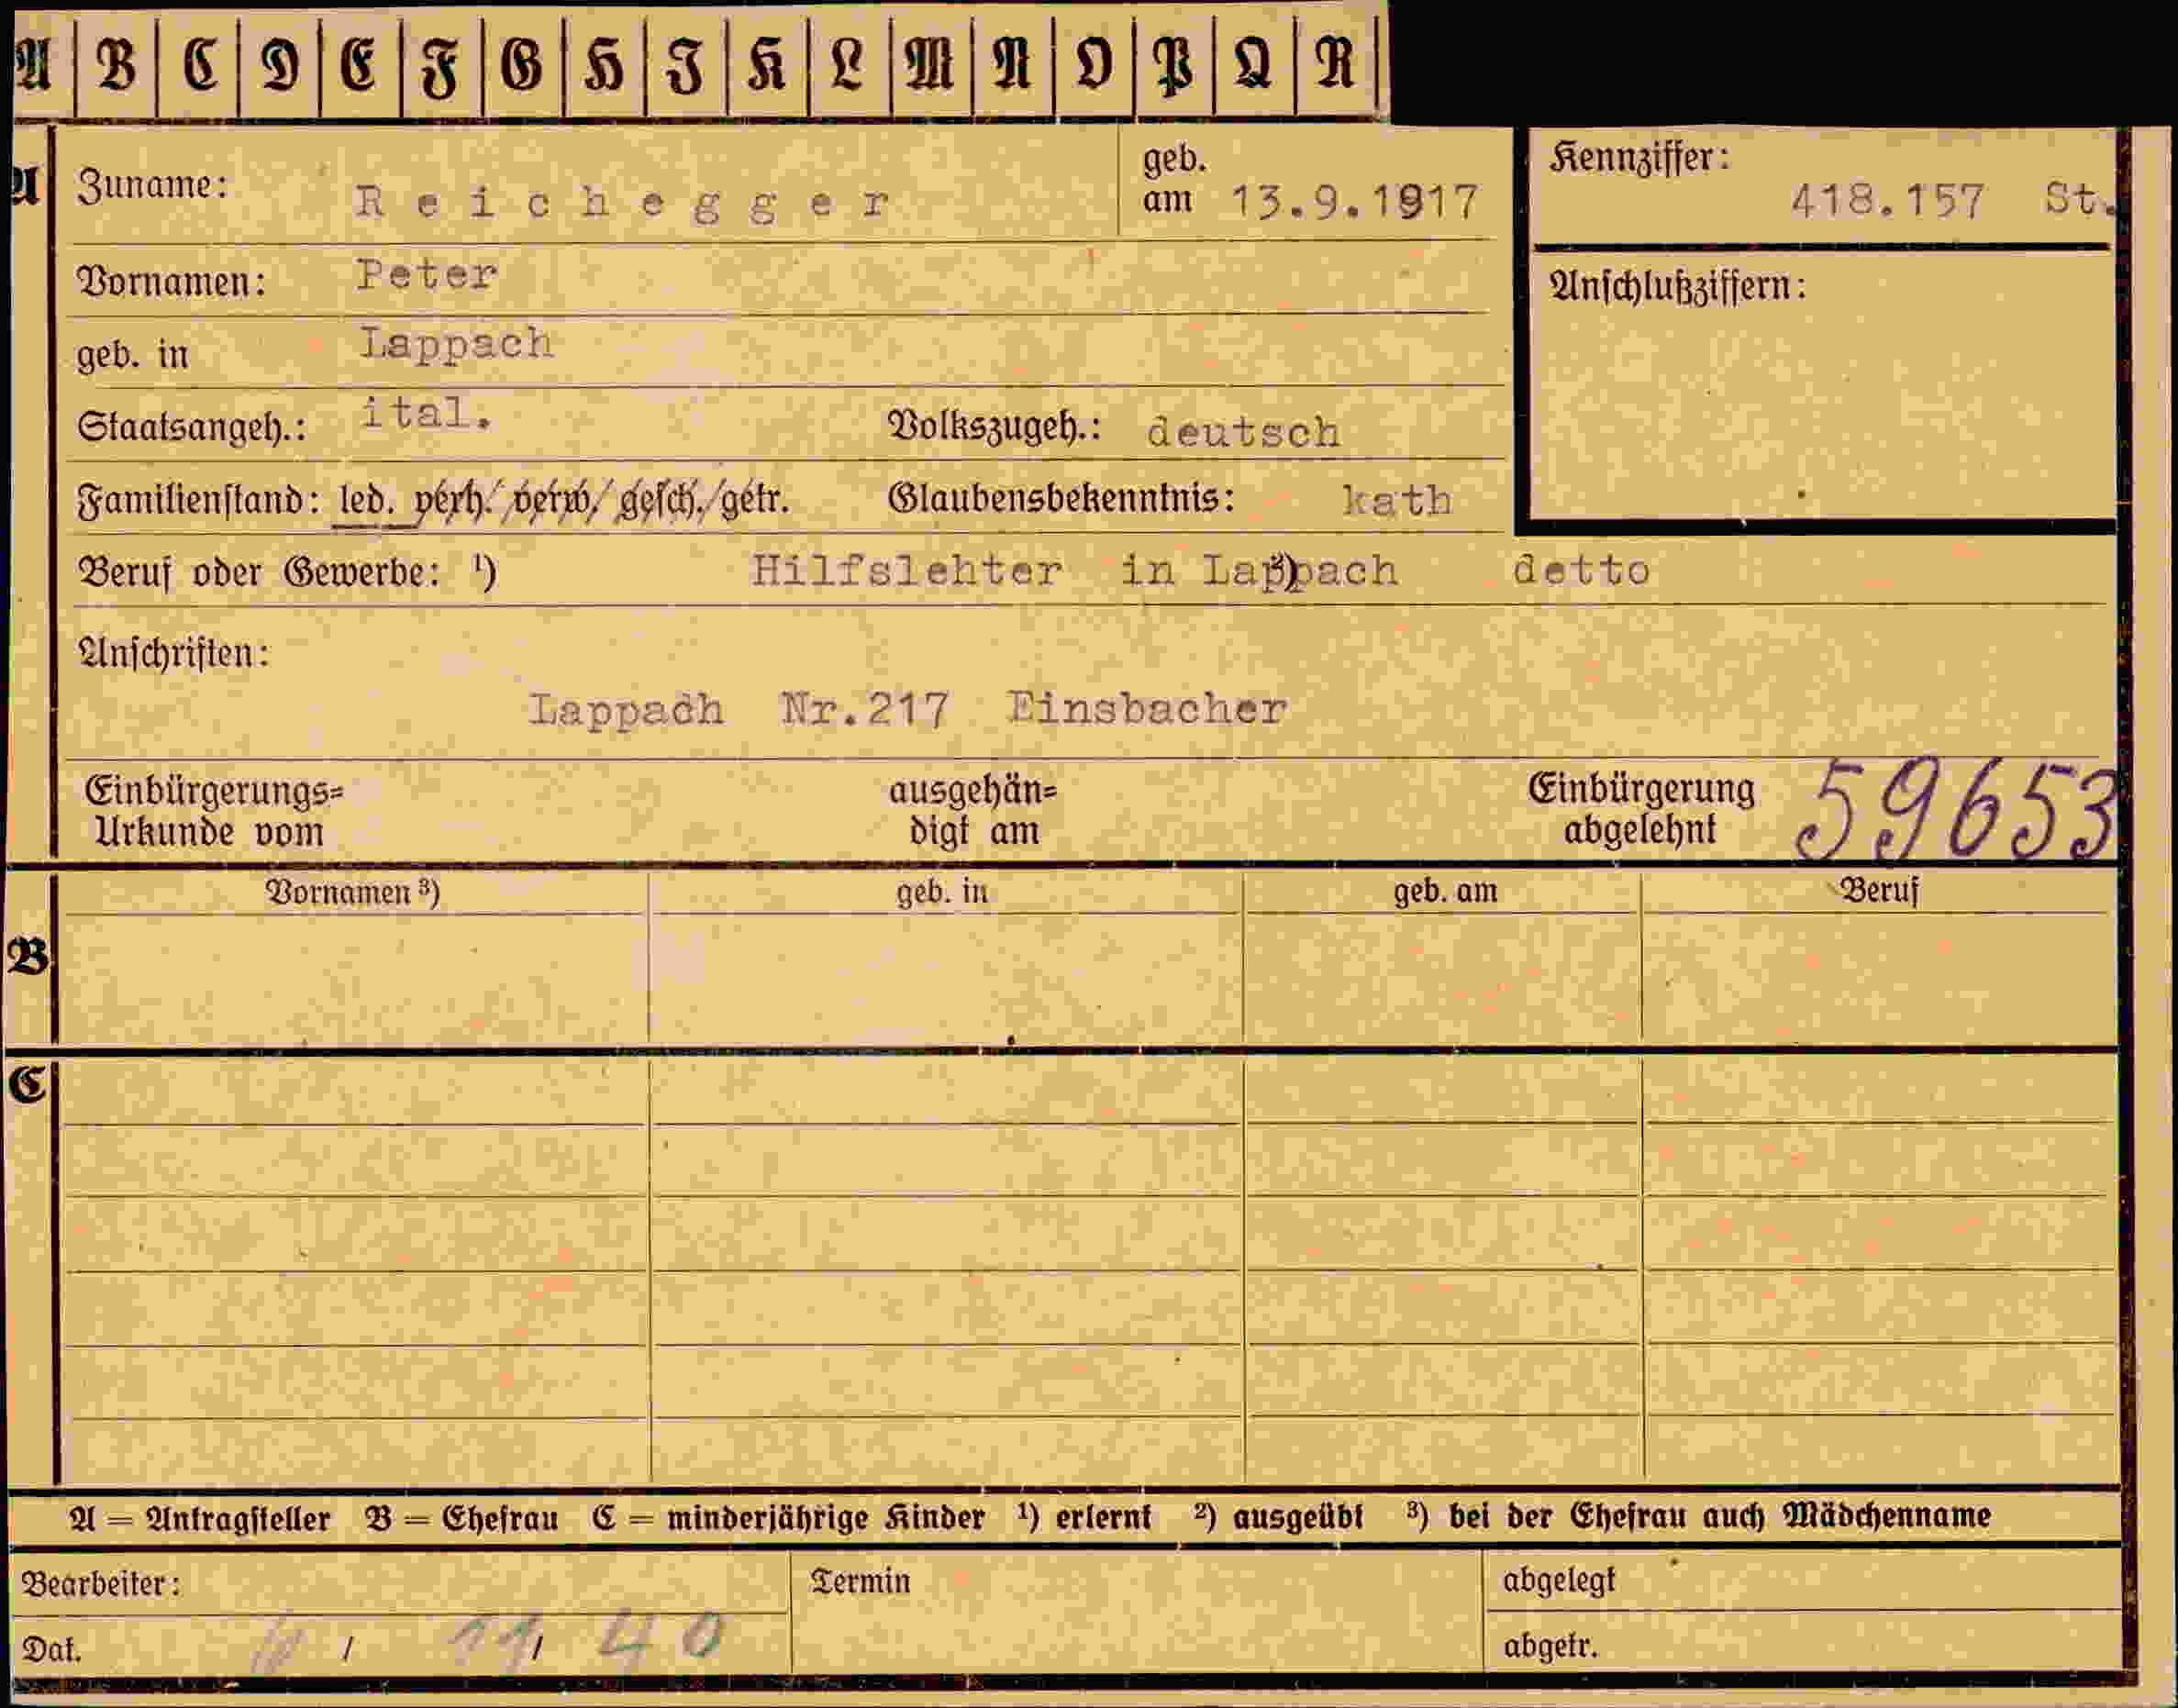 A B C D E F G H I K L M N O P Q R
A Zuname: Reichegger geb. am 13.9.1917 Kennziffer: 418.157 St.
Vornamen: Peter Anschlußziffern:
geb. in Lappach
Staatsangeh.: ital. Volkszugeh.: deutsch
Familienstand: led. verh. verw. gesch. getr. Glaubensbekenntnis: kath
Beruf oder Gewerbe: ¹) Hilfslehter in Lappach ²) detto
Anschriften:
Lappach Nr.217 Einsbacher
Einbürgerungs= ausgehän= Einbürgerung 59653
Urkunde vom digt am abgelehnt
Vornamen ³) geb. in geb. am Beruf
B
C
A = Antragsteller B = Ehefrau C = minderjährige Kinder ¹) erlernt ²) ausgeübt ³) bei der Ehefrau auch Mädchenname
Bearbeiter: Termin abgelegt
Dat. / 11 / 40 abgetr.